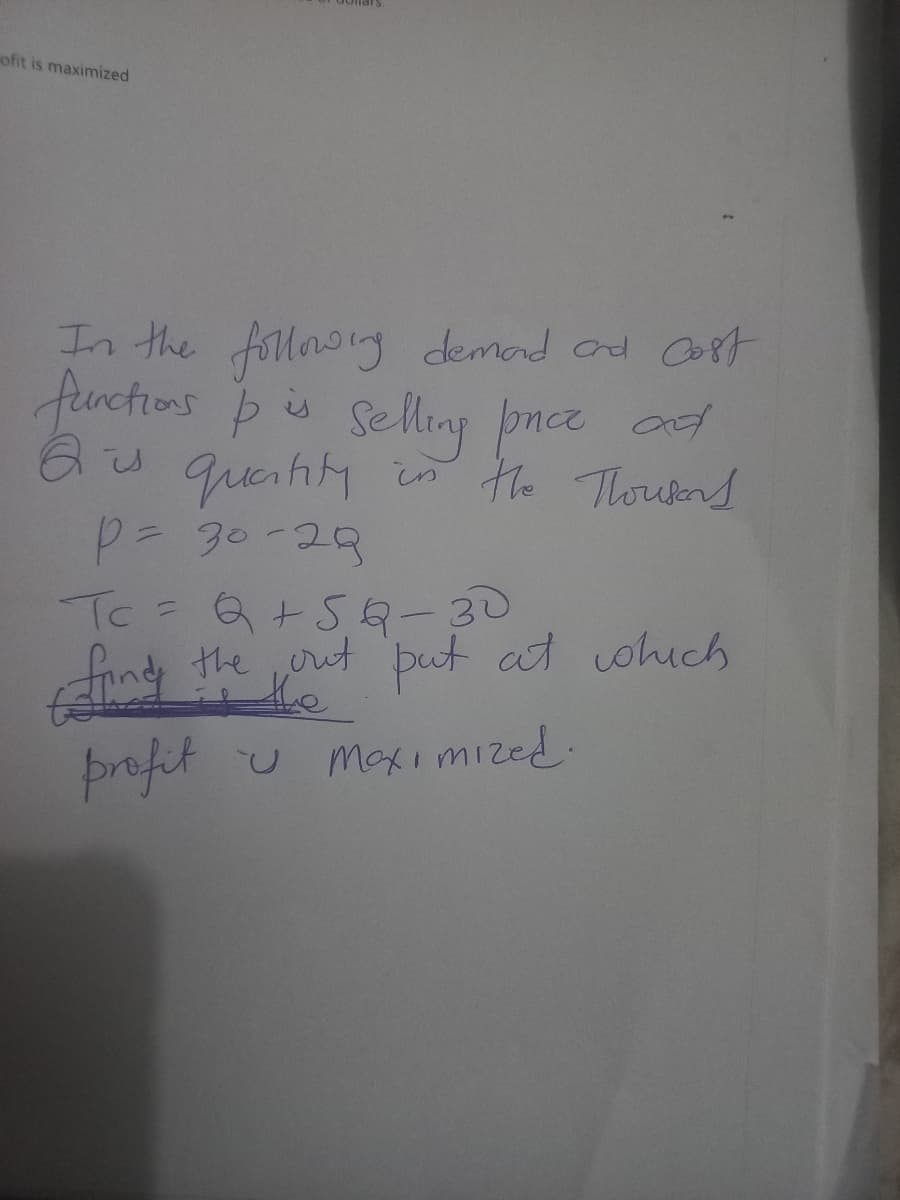 ofit is maximized
In the following demand and cost
functions p is selling price and
Q is quantity in the Thousand
P = 30-2Q
TC = Q + 5Q - 30
find the out put at which
profit is maximized.